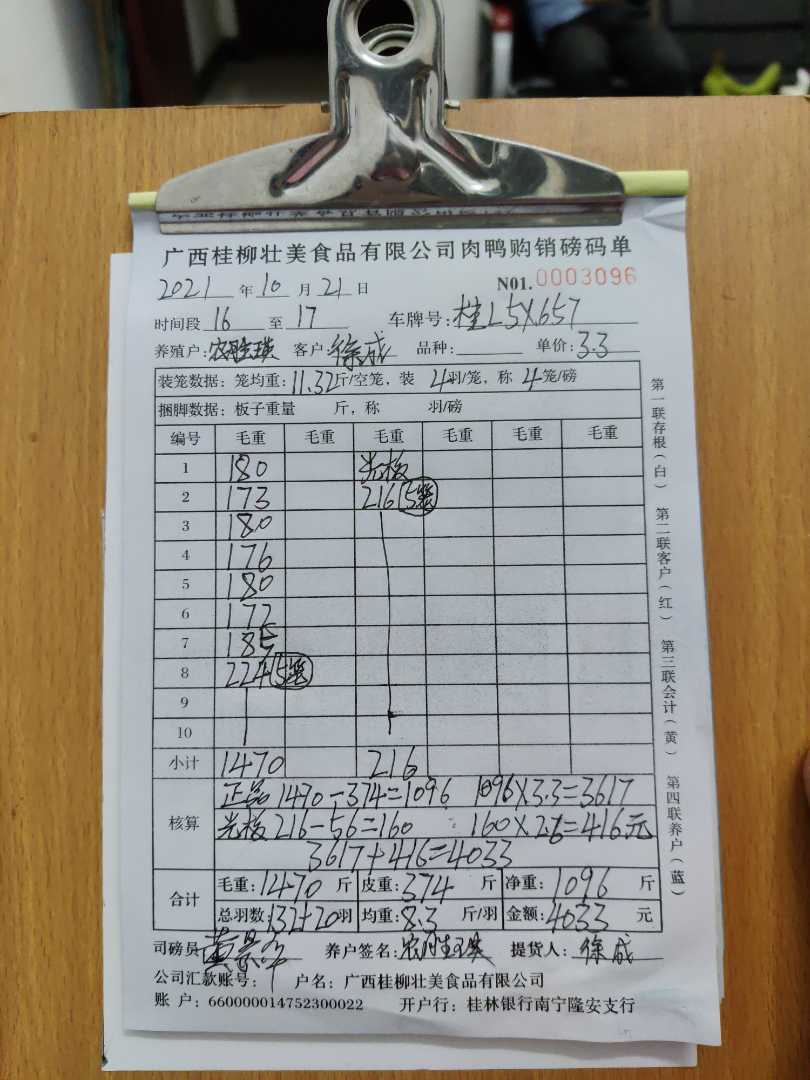 广西桂柳壮美食品有限公司肉鸭购销磅码单
2021 年 10 月 21 日 N01.0003096
时间段 16 至 17 车牌号: 桂L5X657
养殖户: 客户: 徐成 品种: 单价: 3.3
装笼数据: 笼均重: 11.32斤/空笼, 装 4羽/笼, 称 4笼/磅
捆脚数据: 板子重量 斤, 称 羽/磅
编号 毛重 毛重 毛重 毛重 毛重 毛重
1 180
2 173 216 5笼
3 180
4 176
5 180
6 172
7 185
8 224 5笼
9
10
小计 1470 216
核算 正品 1470-374=1096 1096×3.3=3617
216-56=160 160×2.6=416元
3617+416=4033
合计 毛重: 1470 斤 皮重: 374 斤 净重: 1096 斤
总羽数: 132+20羽 均重: 8.3 斤/羽 金额: 4033 元
司磅员 黄景 养户签名: 提货人: 徐成
公司汇款账号: 户名: 广西桂柳壮美食品有限公司
账 户: 660000014752300022 开户行: 桂林银行南宁隆安支行
第一联存根(白) 第二联客户(红) 第三联会计(黄) 第四联养户(蓝)